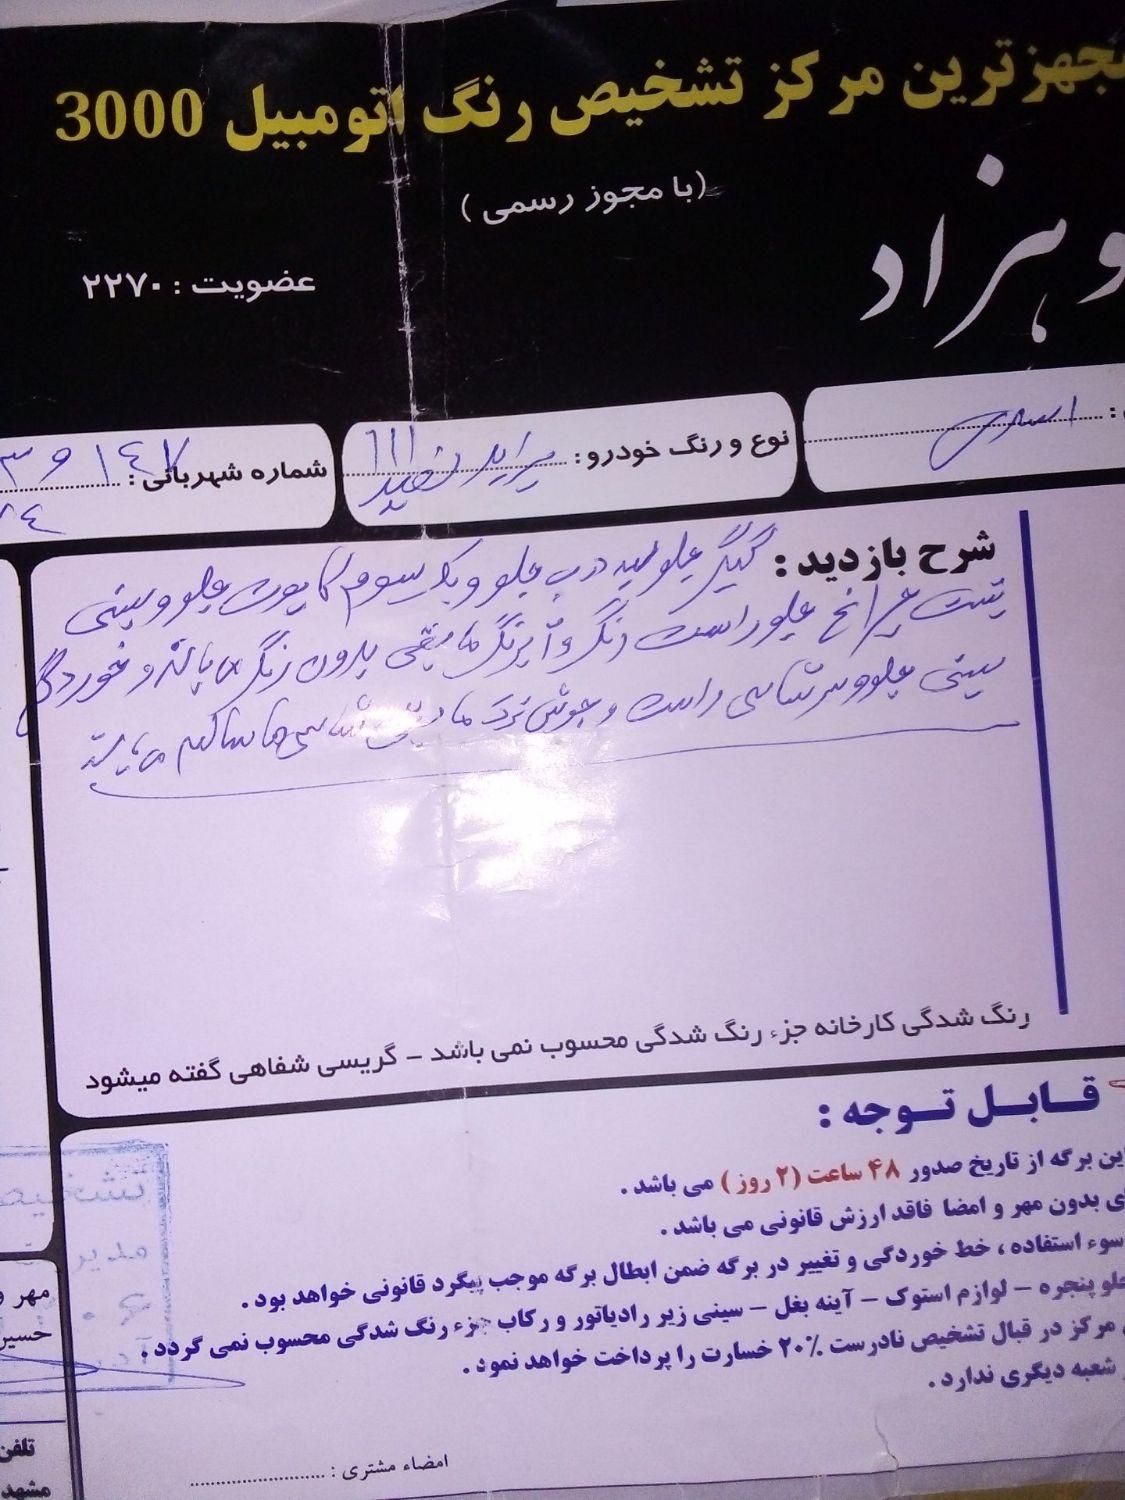 مجهزترین مرکز تشخیص رنگ اتومبیل 3000
(با مجوز رسمی)
عضویت : ۲۲۷۰
نوع و رنگ خودرو : پراید سفید 111
شماره شهربانی :
شرح بازدید : گلگیر جلو درب جلو و یک سوم کاپوت جلو و سینی
پشت چراغ جلو راست رنگ و آبرنگ مابقی بدون رنگ و خوردگی
سینی جلو و سر شاسی راست و جوش ترک مابقی شاسی ها سالم می باشد
رنگ شدگی کارخانه جزء رنگ شدگی محسوب نمی باشد - گریسی شفاهی گفته میشود
قابل توجه :
این برگه از تاریخ صدور ۴۸ ساعت (۲ روز) می باشد .
بدون مهر و امضا فاقد ارزش قانونی می باشد .
سوء استفاده ، خط خوردگی و تغییر در برگه ضمن ابطال برگه موجب پیگرد قانونی خواهد بود .
جلو پنجره - لوازم استوک - آینه بغل - سینی زیر رادیاتور و رکاب جزء رنگ شدگی محسوب نمی گردد .
مرکز در قبال تشخیص نادرست ۲۰% خسارت را پرداخت خواهد نمود .
شعبه دیگری ندارد .
امضاء مشتری :
مهر و
حسین
تلفن
مشهد